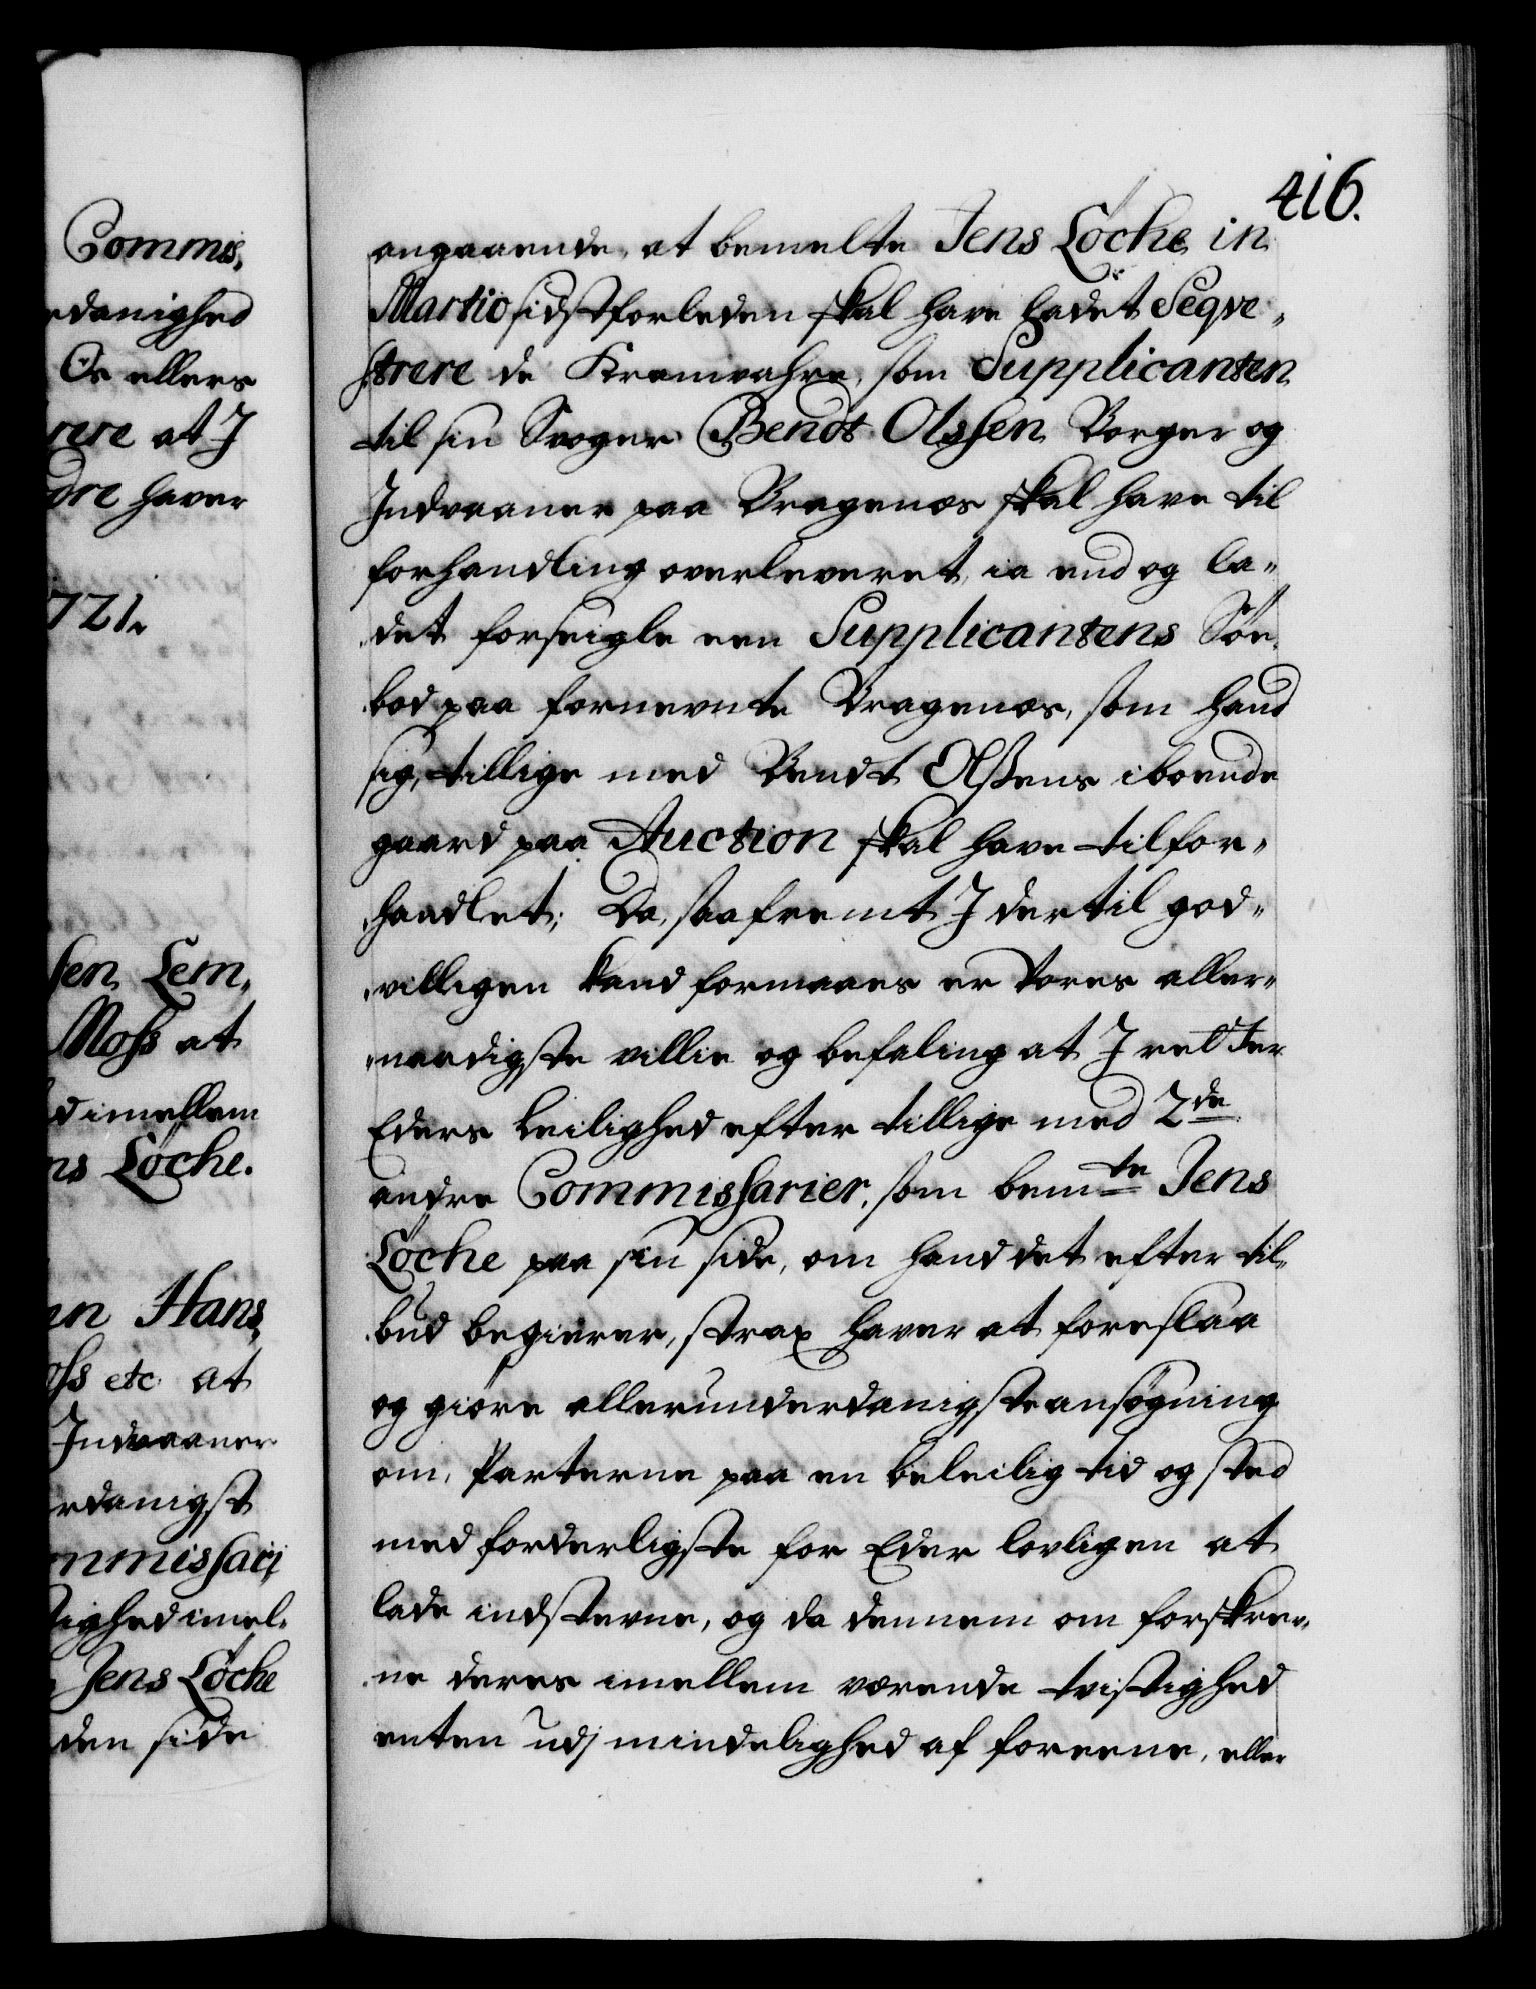 416.
Commis,
rdanighed
Os ellers
rere at J
dre haver
1721.
sen Lem,
Moss at
d imellem
ns Løche.
en Hans,
oss etc at
Indvaaner
rdanigst
ommissarj
tighed imel,
Jens Løche
den side
angaaende, at bemelte Jens Løche in
Martio sidstforleden skal have ladet Seqve,
strere de Kramvahre, som Supplicanten
til sin Svoger Bendt Olssen Borger og
Indvaaner paa Bragenæs skal have til
forhandling overleveret, ia end og la,
det forseigle een Supplicantens Søe,
bod paa fornevnte Bragenæs, som hand
sig, tillige med Bendt Olssens iboende
gaard paa Auction skal have tilfor,
handlet; Da, saafremt J dertil god,
villigen kand formaaes er Vores aller,
naadigste villie og befaling at J retter
Eders leilighed efter tillige med 2de
andre Commissarier, som bemte Jens
Løche paa sin side, om hand det efter til,
bud begierer, strax haver at foreslaa
og giøre allerunderdanigste ansøgning
om, Parterne paa en beleilig tid og sted
med forderligste for Eder lovligen at
lade indstevne, og da dennem om forskrev,
ne deres imellem værende tvistighed
enten udj mindelighed af foreene, eller